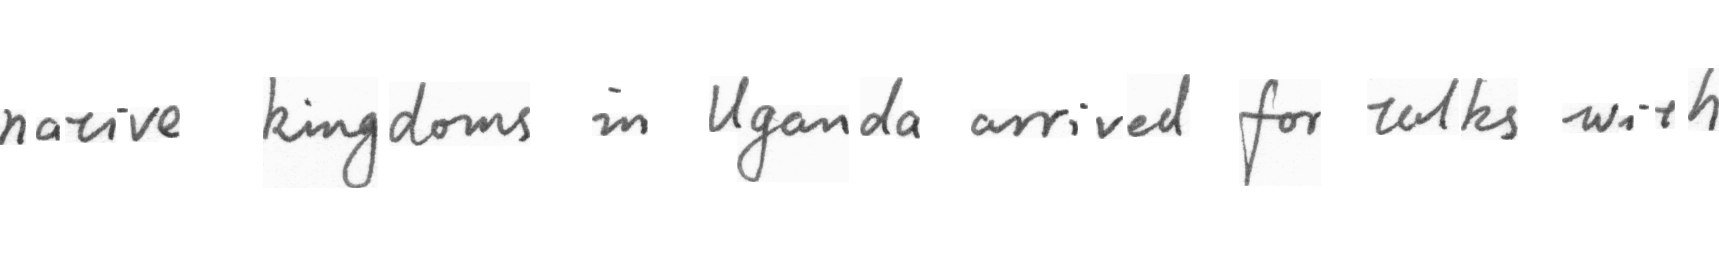 native kingdoms in Uganda arrived for talks with